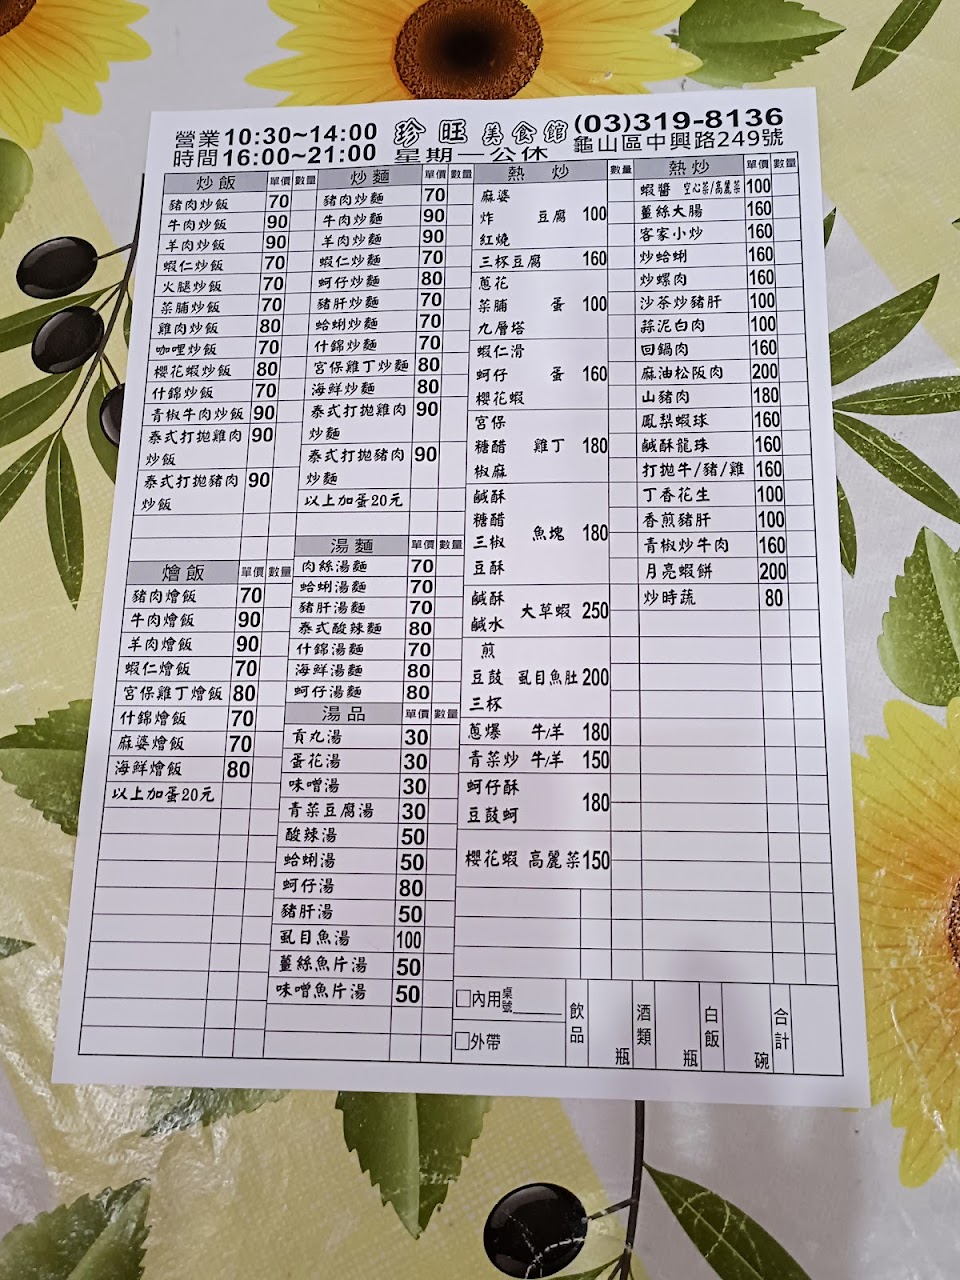 營業 10:30~14:00 珍旺美食館 (03)319-8136
時間 16:00~21:00 星期一公休 龜山區中興路249號
炒飯 單價 數量
豬肉炒飯 70
牛肉炒飯 90
羊肉炒飯 90
蝦仁炒飯 70
火腿炒飯 70
菜脯炒飯 70
雞肉炒飯 80
咖哩炒飯 70
櫻花蝦炒飯 80
什錦炒飯 70
青椒牛肉炒飯 90
泰式打拋雞肉 90
炒飯
泰式打拋豬肉 90
炒飯
燴飯 單價 數量
豬肉燴飯 70
牛肉燴飯 90
羊肉燴飯 90
蝦仁燴飯 70
宮保雞丁燴飯 80
什錦燴飯 70
麻婆燴飯 70
海鮮燴飯 80
以上加蛋20元
炒麵 單價 數量
豬肉炒麵 70
牛肉炒麵 90
羊肉炒麵 90
蝦仁炒麵 70
蚵仔炒麵 80
豬肝炒麵 70
蛤蜊炒麵 70
什錦炒麵 70
宮保雞丁炒麵 80
海鮮炒麵 80
泰式打拋雞肉 90
炒麵
泰式打拋豬肉 90
炒麵
以上加蛋20元
湯麵 單價 數量
肉絲湯麵 70
蛤蜊湯麵 70
豬肝湯麵 70
泰式酸辣麵 80
什錦湯麵 70
海鮮湯麵 80
蚵仔湯麵 80
湯品 單價 數量
貢丸湯 30
蛋花湯 30
味噌湯 30
青菜豆腐湯 30
酸辣湯 50
蛤蜊湯 50
蚵仔湯 80
豬肝湯 50
虱目魚湯 100
薑絲魚片湯 50
味噌魚片湯 50
熱炒 數量
麻婆
炸 豆腐 100
紅燒
三杯豆腐 160
蔥花
菜脯 蛋 100
九層塔
蝦仁滑
蚵仔 蛋 160
櫻花蝦
宮保
糖醋 雞丁 180
椒麻
鹹酥
糖醋
三椒 魚塊 180
豆酥
鹹酥
鹹水 大草蝦 250
煎
豆鼓 虱目魚肚 200
三杯
蔥爆 牛/羊 180
青菜炒 牛/羊 150
蚵仔酥
豆鼓蚵 180
櫻花蝦 高麗菜 150
熱炒 單價 數量
蝦醬 空心菜/高麗菜 100
薑絲大腸 160
客家小炒 160
炒蛤蜊 160
炒螺肉 160
沙茶炒豬肝 100
蒜泥白肉 100
回鍋肉 160
麻油松阪肉 200
山豬肉 180
鳳梨蝦球 160
鹹酥龍珠 160
打拋牛/豬/雞 160
丁香花生 100
香煎豬肝 100
青椒炒牛肉 160
月亮蝦餅 200
炒時蔬 80
□內用 桌號____
□外帶
飲品 瓶
酒類 瓶
白飯 碗
合計